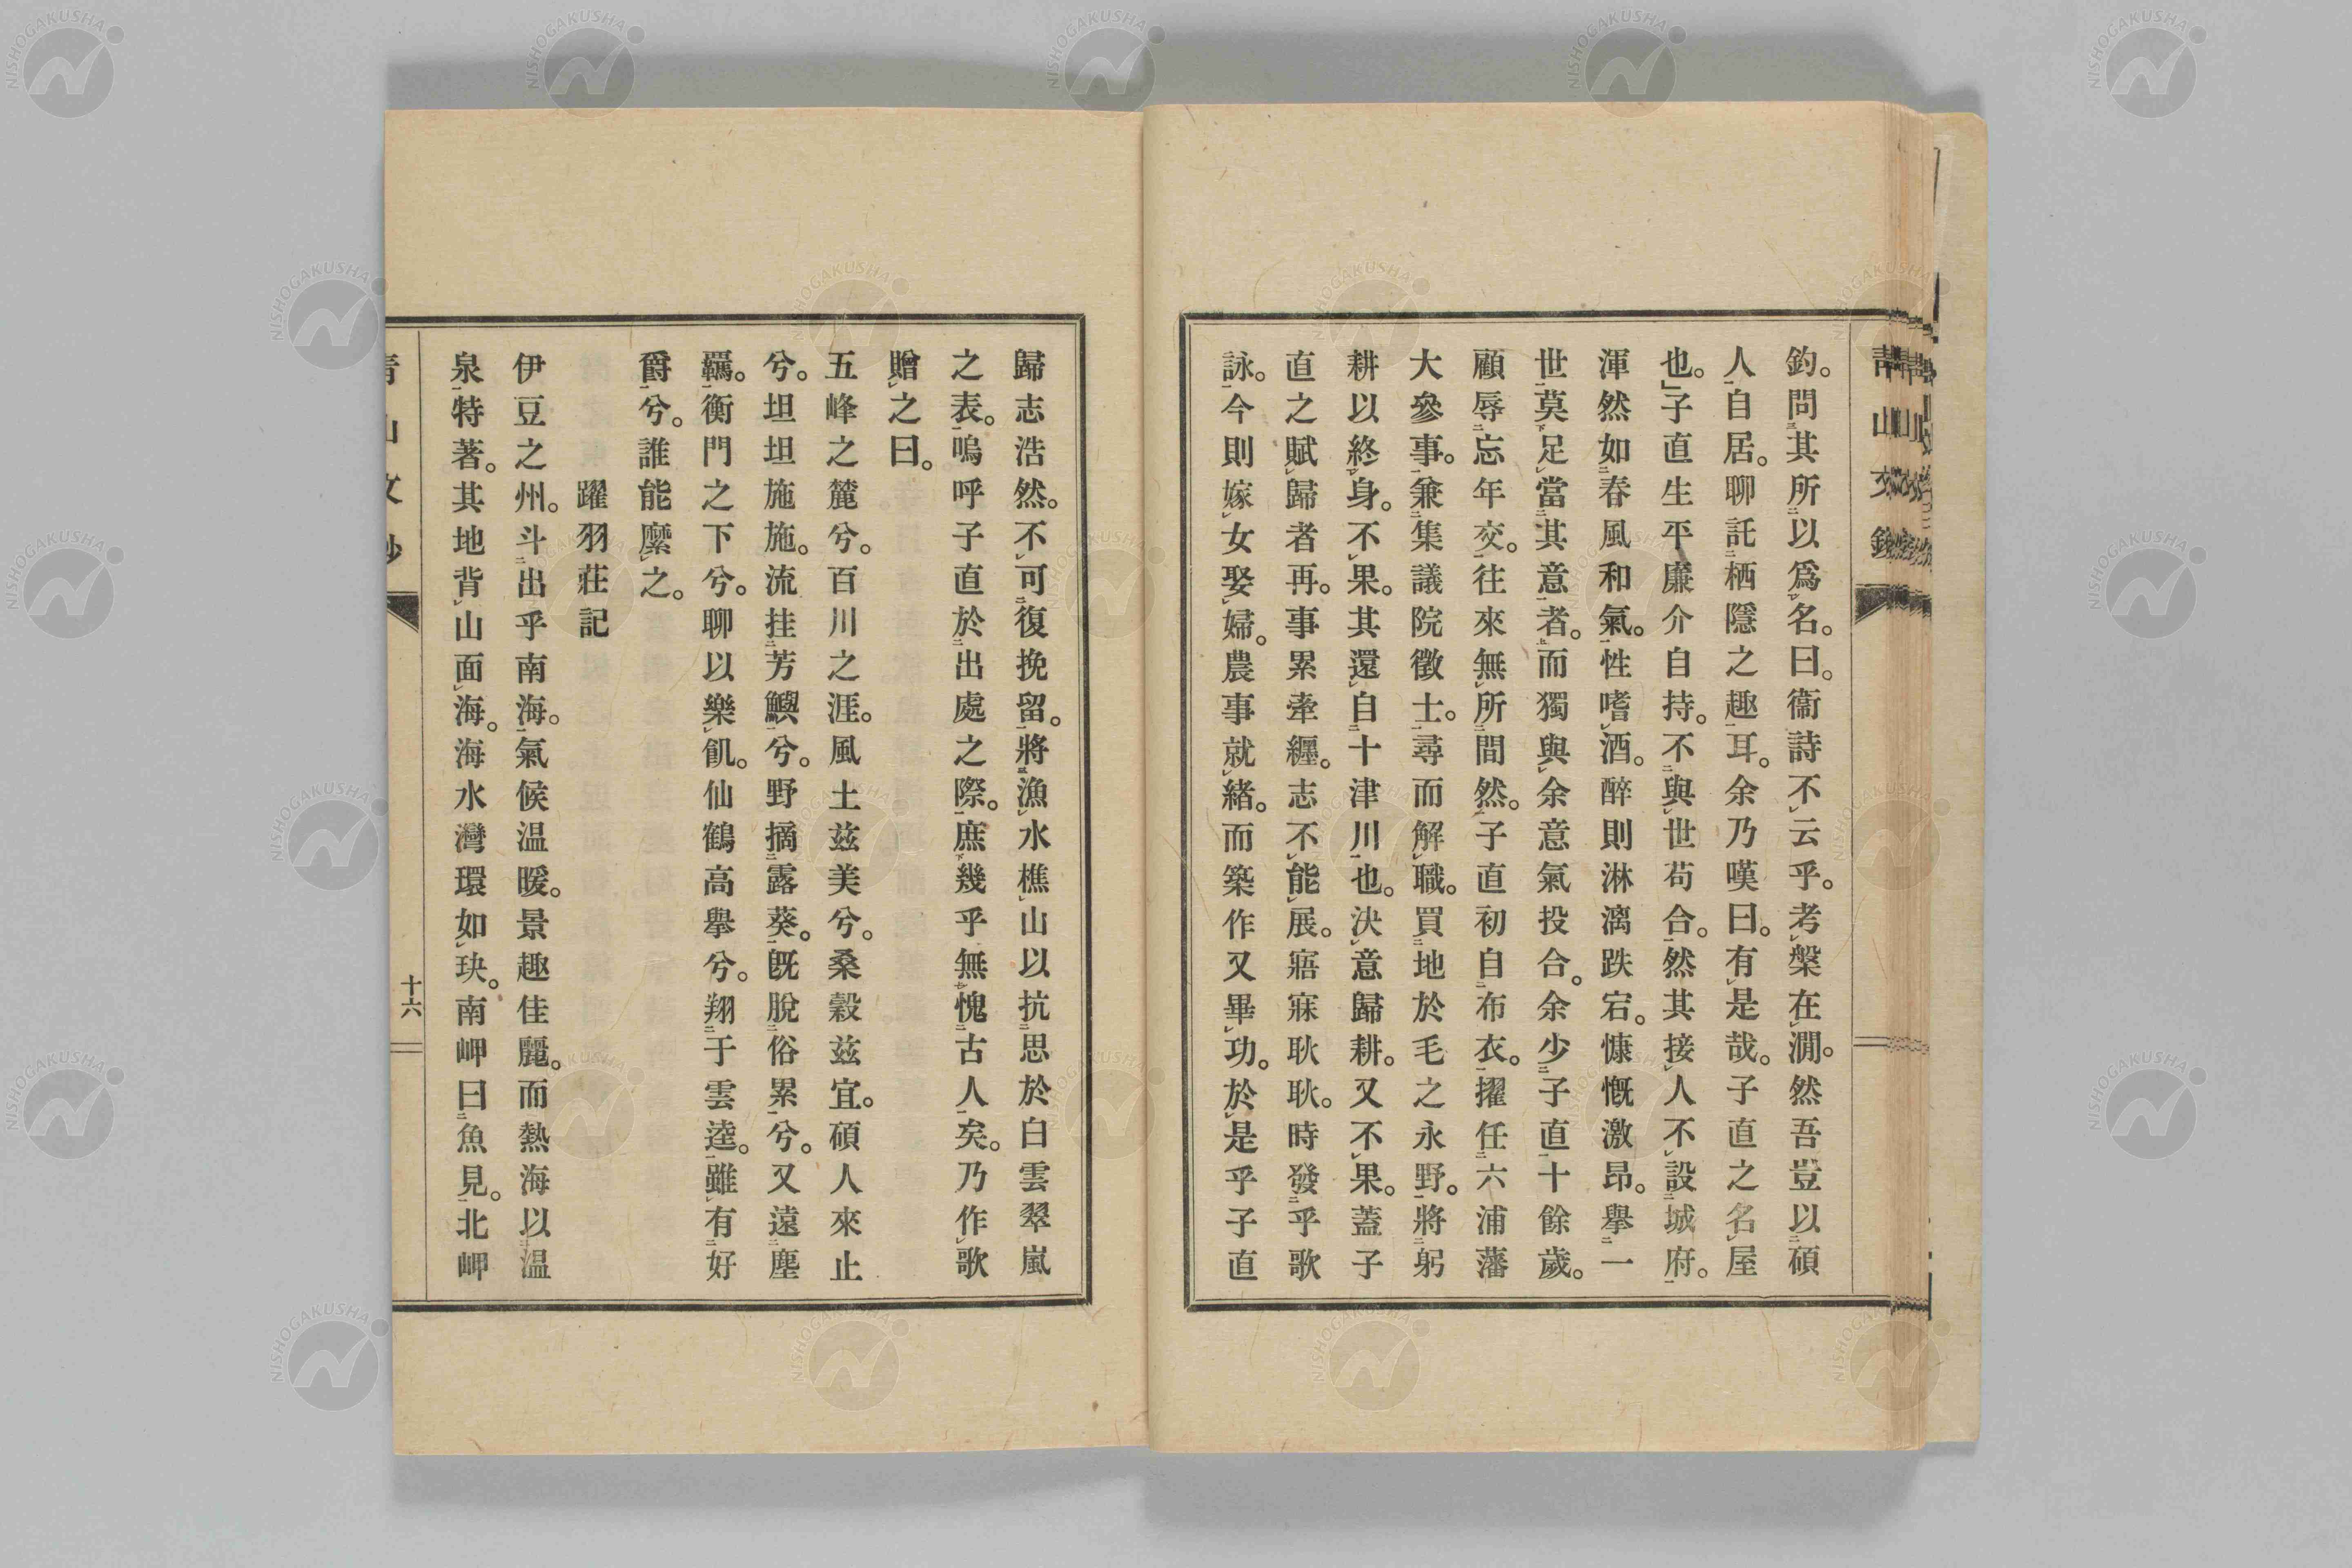 釣。問其所以爲名。曰。衞詩不云乎。考槃在澗。然吾豈以碩
人自居。聊託栖隱之趣耳。余乃嘆曰。有是哉。子直之名屋
也。」子直生平廉介自持。不與世苟合。然其接人不設城府。
渾然如春風和氣。性嗜酒。醉則淋漓跌宕。慷慨激昂。擧一
世莫足當其意者。而獨與余意氣投合。余少子直十餘歲。
顧辱忘年交。往來無所間然。子直初自布衣。擢任六浦藩
大參事。兼集議院徵士。尋而解職。買地於毛之永野。將躬
耕以終身。不果。其還自十津川也。決意歸耕。又不果。蓋子
直之賦歸者再。事累牽纒。志不能展。寤寐耿耿。時發乎歌
詠。今則嫁女娶婦。農事就緖。而築作又畢功。於是乎子直
歸志浩然。不可復挽留。將漁水樵山以抗思於白雲翠嵐
之表。嗚呼子直於出處之際。庶幾乎無愧古人矣。乃作歌
贈之曰。
五峰之麓兮。百川之涯。風土茲美兮。桑穀茲宜。碩人來止
兮。坦坦施施。流挂芳鱮兮。野摘露葵。旣脫俗累兮。又遠塵
羈。衡門之下兮。聊以樂飢。仙鶴高擧兮。翔于雲逵。雖有好
爵兮。誰能縻之。
躍羽莊記
伊豆之州。斗出乎南海。氣候温暖。景趣佳麗。而熱海以温
泉特著。其地背山面海。海水灣環如玦。南岬曰魚見。北岬
靑山文鈔
十六
NISHOGAKUSHA